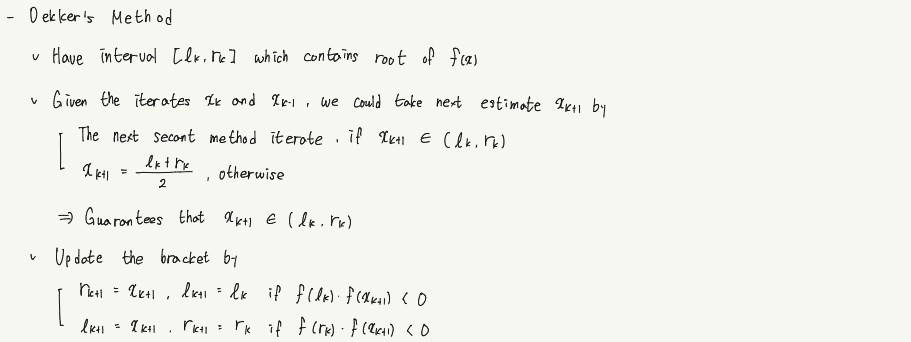 - Dekker's Method
v Have interval [lₖ, rₖ] which contains root of f(x)
v Given the iterates xₖ and xₖ₋₁, we could take next estimate xₖ₊₁ by
The next secant method iterate, if xₖ₊₁ ∈ (lₖ, rₖ)
xₖ₊₁ = (lₖ + rₖ)/2, otherwise
⇒ Guarantees that xₖ₊₁ ∈ (lₖ, rₖ)
v Update the bracket by
rₖ₊₁ = xₖ₊₁, lₖ₊₁ = lₖ if f(lₖ)·f(xₖ₊₁) < 0
lₖ₊₁ = xₖ₊₁, rₖ₊₁ = rₖ if f(rₖ)·f(xₖ₊₁) < 0